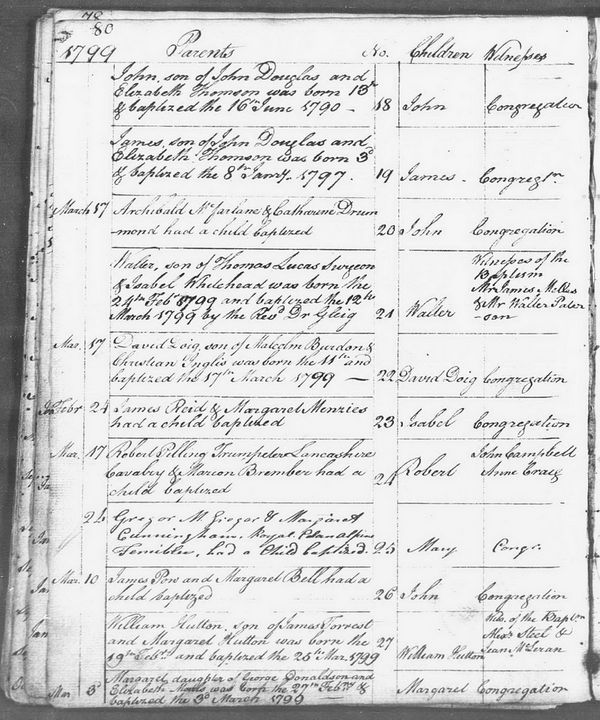 78
80
1799 Parents No. Children Witnesses
John, son of John Douglas and
Elizabeth Thomson was born 13th
& baptized the 16th June 1790 — 18 John Congregation
James, son of John Douglas and
Elizabeth Thomson was born 3d
& baptized the 8th Janry. 1797. 19 James - Congregn.
March 17 Archibald McFarlane & Catharine Drum
mond had a child baptized 20 John Congregation
Walter, son of Thomas Lucas Surgeon
& Isabel Whitehead was born the
24th Febr 1799 and baptized the 12th
March 1799 by the Revd Dr Gleig 21 Walter
Witnesses of the
Baptism
Mr James
& Mr Walter Pater
-son
Mar. 17 David Doig, son of Malcolm Burdon &
Christian Inglis was born the 11th and
baptized the 17th March 1799 — 22 David Doig Congregation
Febr 24 James Reid & Margaret Menzies
had a child baptized 23 Isabel Congregation
Mar. 17 Robert Pilling Trumpeter Lancashire
Cavalry & Marion Brember had a
child baptized 24 Robert
John Campbell
Anne
24 Gregor McGregor & Margaret
Cunningham, Royal Clan Alpine
Fencibles, had a Child baptized. 25 Mary Congr.
Mar. 10 James Pow and Margaret Bell had a
child baptized 26 John Congregation
William Hutton, son of James Forrest
and Margaret Hutton was born the
19th Febr. and baptized the 25th Mar. 1799 27 William Hutton
Wits. of the Baptm
Miss Steel &
Jean
Mar 3d Margaret, daughter of George Donaldson and
Elizabeth was born the 27th Febry &
baptized the 3d March 1799 — Margaret Congregation